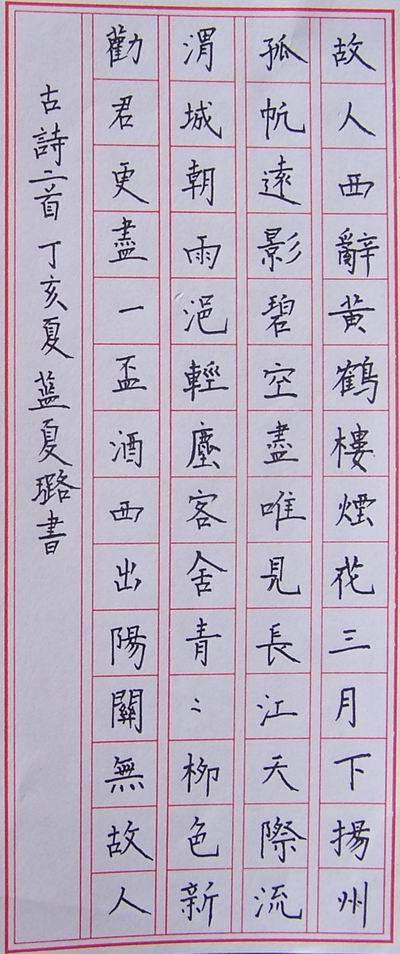 故人西辭黃鶴樓煙花三月下揚州
孤帆遠影碧空盡唯見長江天際流
渭城朝雨浥輕塵客舍青〻柳色新
勸君更盡一盃酒西出陽關無故人
古詩二首丁亥夏藍夏璐書